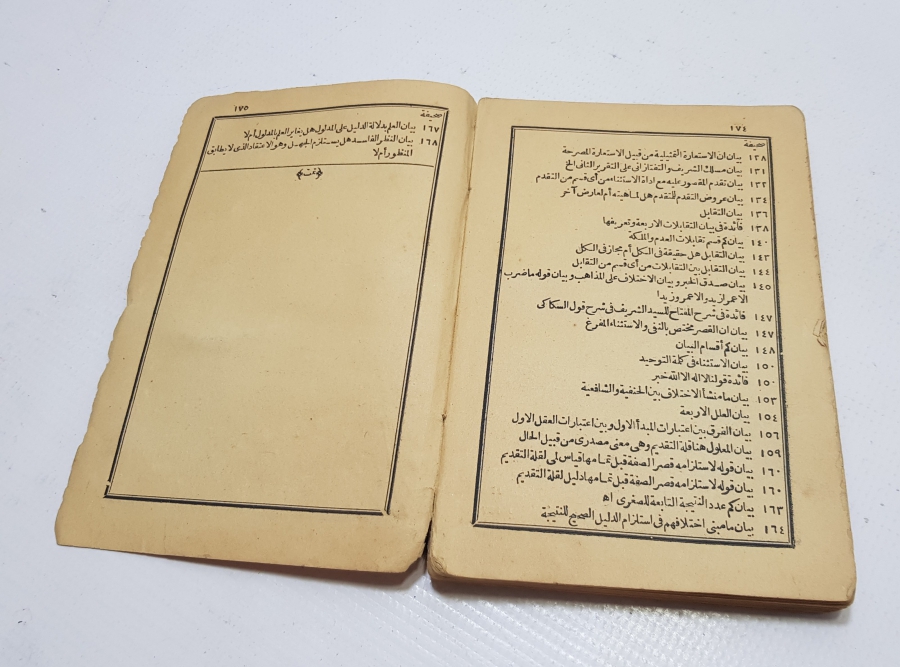 ١٧٤
صحيفة
١٢٨ بيان ان الاستعارة التمثيلية من قبيل الاستعارة المصرحة
١٣١ بيان مسلك الشريف والتفتازانى على التقرير الثانى الخ
١٣٢ بيان تقدم المقسور عليه مع اداة الاستثناء من أى قسم من التقدم
١٣٤ بيان عروض التقدم للمتقدم هل لماهيته أم لعارض آخر
١٣٦ بيان التقابل
١٣٨ فائدة فى بيان التقابلات الاربعة وتعريفها
١٤٠ بيان كم قسم تقابلات العدم والملكة
١٤٣ بيان التقابل هل حقيقة فى الكل أم مجاز فى الكل
١٤٤ بيان التقابل بين التقابلات من أى قسم من التقابل
١٤٥ بيان صدق الخبر وبيان الاختلاف على المذاهب وبيان قوله ماضرب
الاعمر ازيد والاعمرو زيدا
١٤٧ فائدة فى شرح المفتاح للسيد الشريف فى شرح قول السكاكى
١٤٧ بيان ان القصر مختص بالنفى والاستثناء المفرغ
١٤٨ بيان كم أقسام البيان
١٥٠ بيان الاستثناء فى كلمة التوحيد
١٥٠ فائدة قولنا لا اله الا الله خبر
١٥٣ بيان مامنشأ الاختلاف بين الحنفية والشافعية
١٥٤ بيان العلل الاربعة
١٥٦ بيان الفرق بين اعتبارات المبدأ الاول وبين اعتبارات العقل الاول
١٥٩ بيان المعلول هنا قلة التقديم وهى معنى مصدرى من قبيل الحال
١٦٠ بيان قوله لاستلزامه قصر الصفة قبل تمامها قياس لمى لقلة التقديم
١٦٠ بيان قوله لاستلزامه قصر الصفة قبل تمامها دليل لقلة التقديم
١٦٣ بيان كم عدد النتيجة التابعة للصغرى اه
١٦٤ بيان مامبنى اختلافهم فى استلزام الدليل الصحيح للنتيجة
١٧٥
صحيفة
١٦٧ بيان العلم بدلالة الدليل على المدلول هل يغاير العلم بالمدلول أم لا
١٦٨ بيان النظر الفاسد هل يستلزم الجهل وهو الاعتقاد الذى لا يطابق
المنظور أم لا
﴿تمت﴾